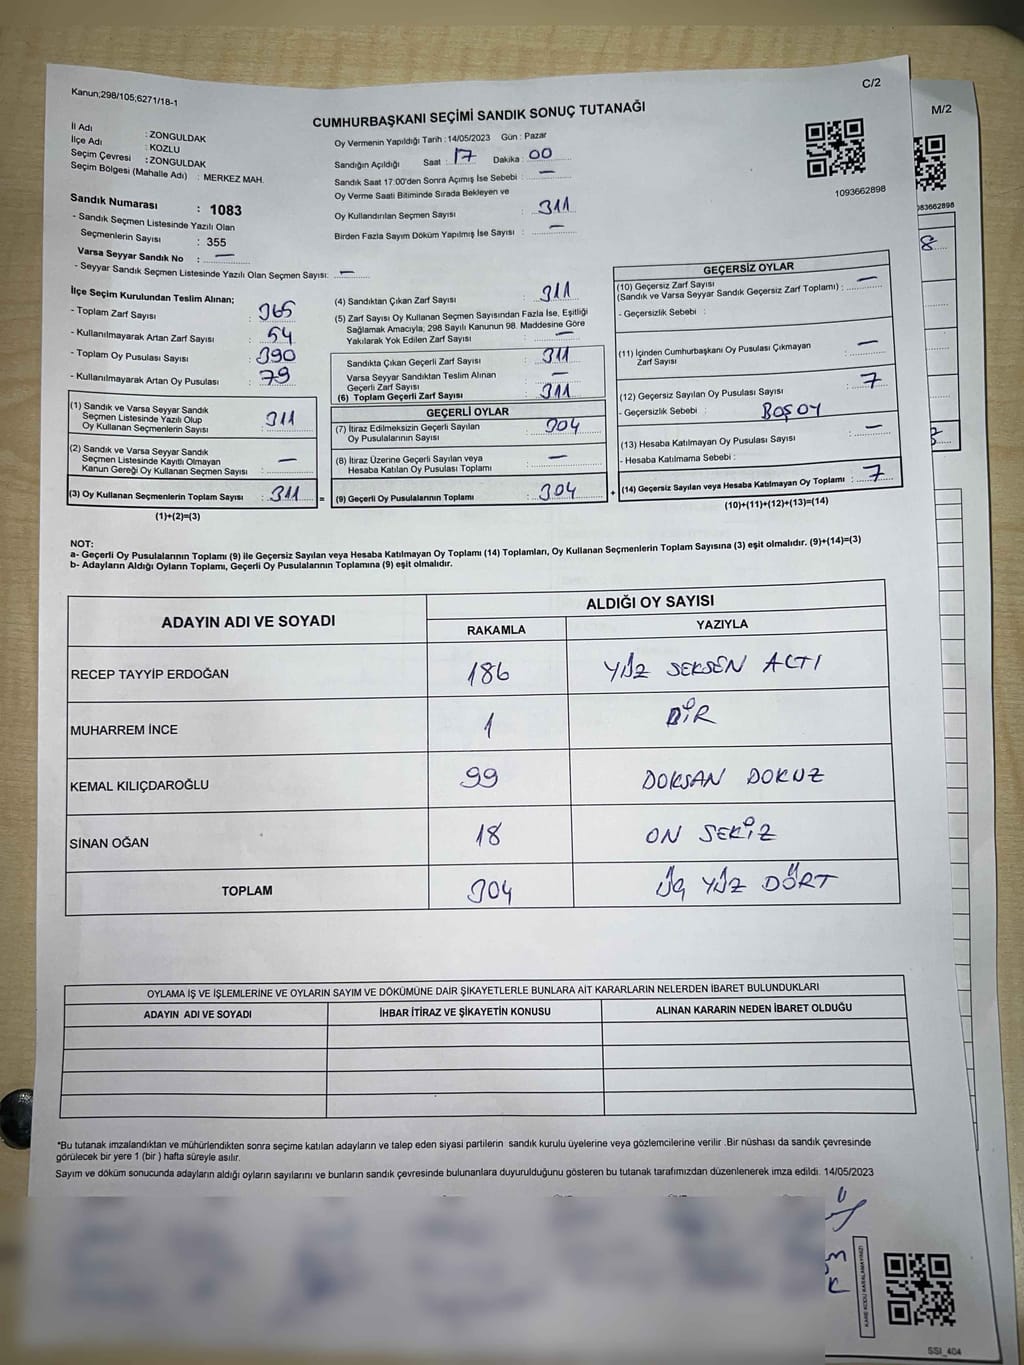 Kanun;298/105;6271/18-1
C/2
CUMHURBAŞKANI SEÇİMİ SANDIK SONUÇ TUTANAĞI
M/2
İl Adı : ZONGULDAK
İlçe Adı : KOZLU
Seçim Çevresi : ZONGULDAK
Seçim Bölgesi (Mahalle Adı) : MERKEZ MAH.
Sandık Numarası : 1083
- Sandık Seçmen Listesinde Yazılı Olan
Seçmenlerin Sayısı : 355
Varsa Seyyar Sandık No : —
- Seyyar Sandık Seçmen Listesinde Yazılı Olan Seçmen Sayısı: —
Oy Vermenin Yapıldığı Tarih : 14/05/2023 Gün : Pazar
Sandığın Açıldığı Saat : 17 Dakika : 00
Sandık Saat 17:00'den Sonra Açımış İse Sebebi : —
Oy Verme Saati Bitiminde Sırada Bekleyen ve
Oy Kullandırılan Seçmen Sayısı : 311
Birden Fazla Sayım Döküm Yapılmış İse Sayısı : —
1093662898
083662898
8
İlçe Seçim Kurulundan Teslim Alınan;
- Toplam Zarf Sayısı : 365
- Kullanılmayarak Artan Zarf Sayısı : 54
- Toplam Oy Pusulası Sayısı : 390
- Kullanılmayarak Artan Oy Pusulası : 79
(1) Sandık ve Varsa Seyyar Sandık
Seçmen Listesinde Yazılı Olup
Oy Kullanan Seçmenlerin Sayısı : 311
(2) Sandık ve Varsa Seyyar Sandık
Seçmen Listesinde Kayıtlı Olmayan
Kanun Gereği Oy Kullanan Seçmen Sayısı : —
(3) Oy Kullanan Seçmenlerin Toplam Sayısı : 311 =
(1)+(2)=(3)
(4) Sandıktan Çıkan Zarf Sayısı : 311
(5) Zarf Sayısı Oy Kullanan Seçmen Sayısından Fazla İse, Eşitliği
Sağlamak Amacıyla, 298 Sayılı Kanunun 98. Maddesine Göre
Yakılarak Yok Edilen Zarf Sayısı : —
Sandıkta Çıkan Geçerli Zarf Sayısı : 311
Varsa Seyyar Sandıktan Teslim Alınan
Geçerli Zarf Sayısı : —
(6) Toplam Geçerli Zarf Sayısı : 311
GEÇERLİ OYLAR
(7) İtiraz Edilmeksizin Geçerli Sayılan
Oy Pusulalarının Sayısı : 304
(8) İtiraz Üzerine Geçerli Sayılan veya
Hesaba Katılan Oy Pusulası Toplamı : —
(9) Geçerli Oy Pusulalarının Toplamı : 304 +
GEÇERSİZ OYLAR
(10) Geçersiz Zarf Sayısı
(Sandık ve Varsa Seyyar Sandık Geçersiz Zarf Toplamı) : —
- Geçersizlik Sebebi :
(11) İçinden Cumhurbaşkanı Oy Pusulası Çıkmayan
Zarf Sayısı : —
(12) Geçersiz Sayılan Oy Pusulası Sayısı : 7
- Geçersizlik Sebebi : BOŞ OY
(13) Hesaba Katılmayan Oy Pusulası Sayısı : —
- Hesaba Katılmama Sebebi :
(14) Geçersiz Sayılan veya Hesaba Katılmayan Oy Toplamı : 7
(10)+(11)+(12)+(13)=(14)
NOT:
a- Geçerli Oy Pusulalarının Toplamı (9) ile Geçersiz Sayılan veya Hesaba Katılmayan Oy Toplamı (14) Toplamları, Oy Kullanan Seçmenlerin Toplam Sayısına (3) eşit olmalıdır. (9)+(14)=(3)
b- Adayların Aldığı Oyların Toplamı, Geçerli Oy Pusulalarının Toplamına (9) eşit olmalıdır.
ADAYIN ADI VE SOYADI ALDIĞI OY SAYISI
RAKAMLA YAZIYLA
RECEP TAYYİP ERDOĞAN 186 YÜZ SEKSEN ALTI
MUHARREM İNCE 1 BİR
KEMAL KILIÇDAROĞLU 99 DOKSAN DOKUZ
SİNAN OĞAN 18 ON SEKİZ
TOPLAM 304 ÜÇ YÜZ DÖRT
OYLAMA İŞ VE İŞLEMLERİNE VE OYLARIN SAYIM VE DÖKÜMÜNE DAİR ŞİKAYETLERLE BUNLARA AİT KARARLARIN NELERDEN İBARET BULUNDUKLARI
ADAYIN ADI VE SOYADI İHBAR İTİRAZ VE ŞİKAYETİN KONUSU ALINAN KARARIN NEDEN İBARET OLDUĞU
*Bu tutanak imzalandıktan ve mühürlendikten sonra seçime katılan adayların ve talep eden siyasi partilerin sandık kurulu üyelerine veya gözlemcilerine verilir .Bir nüshası da sandık çevresinde
görülecek bir yere 1 (bir ) hafta süreyle asılır.
Sayım ve döküm sonucunda adayların aldığı oyların sayılarını ve bunların sandık çevresinde bulunanlara duyurulduğunu gösteren bu tutanak tarafımızdan düzenlenerek imza edildi. 14/05/2023
KARE KODU KARALAMAYINIZ!
SSI_404